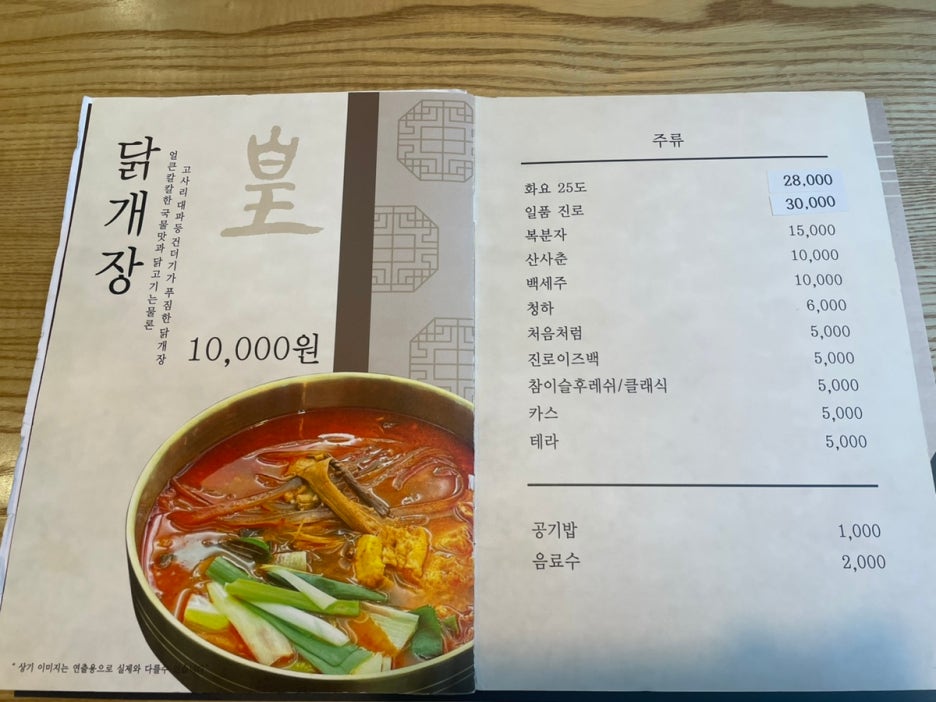 닭개장
얼큰칼칼한 국물맛과 닭고기는물론
고사리 대파등 건더기가 푸짐한 닭개장
皇
10,000원
* 상기 이미지는 연출용으로 실제와 다를수
주류
화요 25도 28,000
일품 진로 30,000
복분자 15,000
산사춘 10,000
백세주 10,000
청하 6,000
처음처럼 5,000
진로이즈백 5,000
참이슬후레쉬/클래식 5,000
카스 5,000
테라 5,000
공기밥 1,000
음료수 2,000